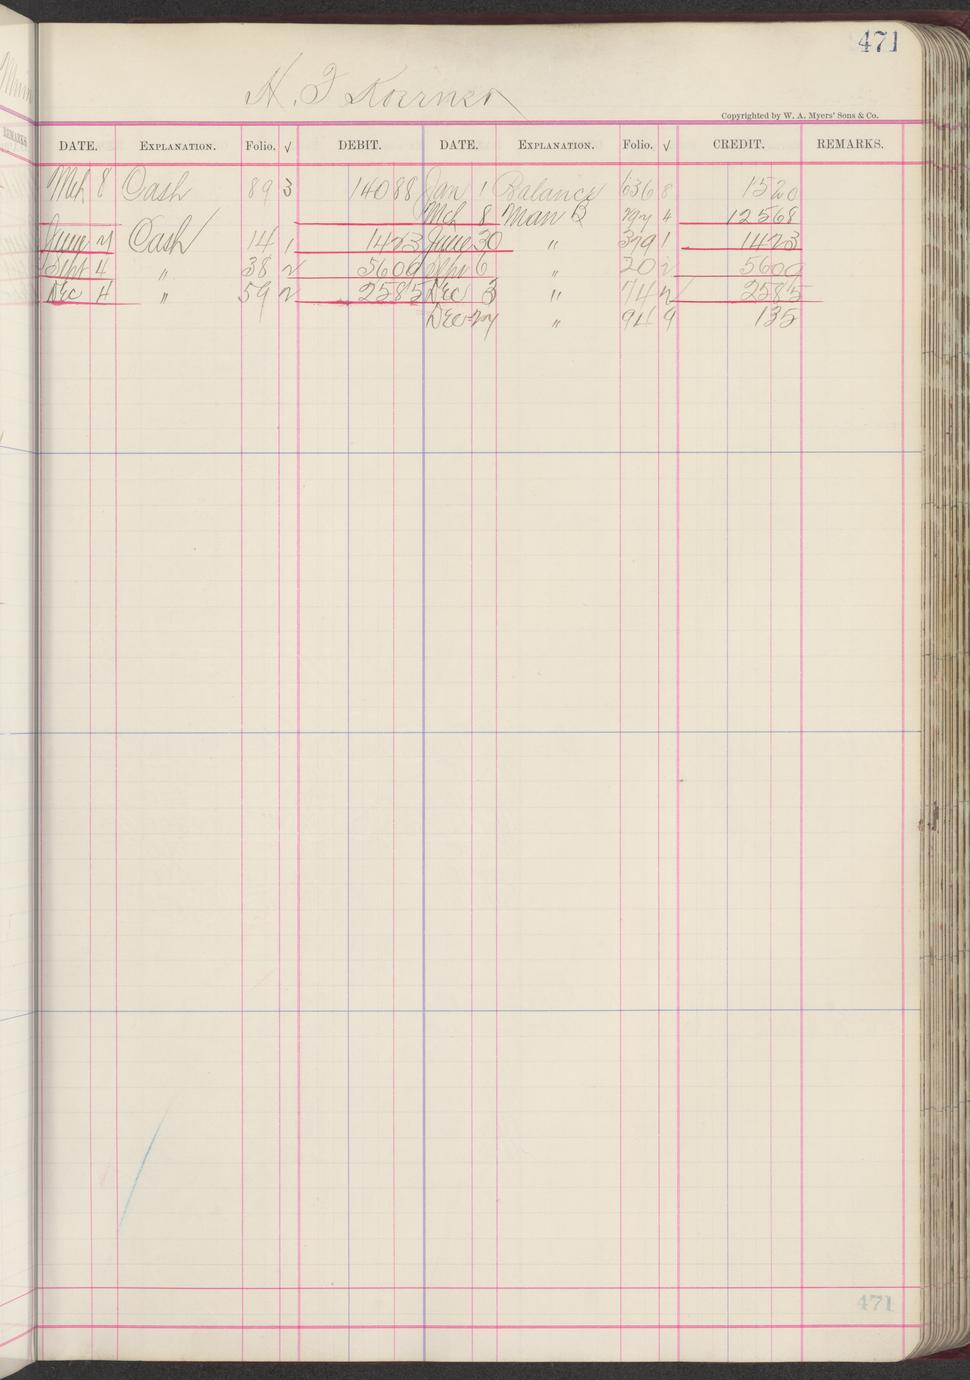 471
H. F. Koerner
Copyrighted by W. A. Myers' Sons & Co.
DATE. EXPLANATION. Folio. √ DEBIT. DATE. EXPLANATION. Folio. √ CREDIT. REMARKS.
Mch 8 Cash 89 3 140 88 Jan 1 Balance 636 8 15 20
Mch 8 Man B 4 125 68
June Cash 14 1 14 23 June 30 " 379 1 14 23
Sept 4 " 38 2 56 00 Sept 6 " 20 2 56 00
Dec 4 " 59 2 25 85 Dec 3 " 74 2 25 85
Dec 27 " 94 9 1 35
471